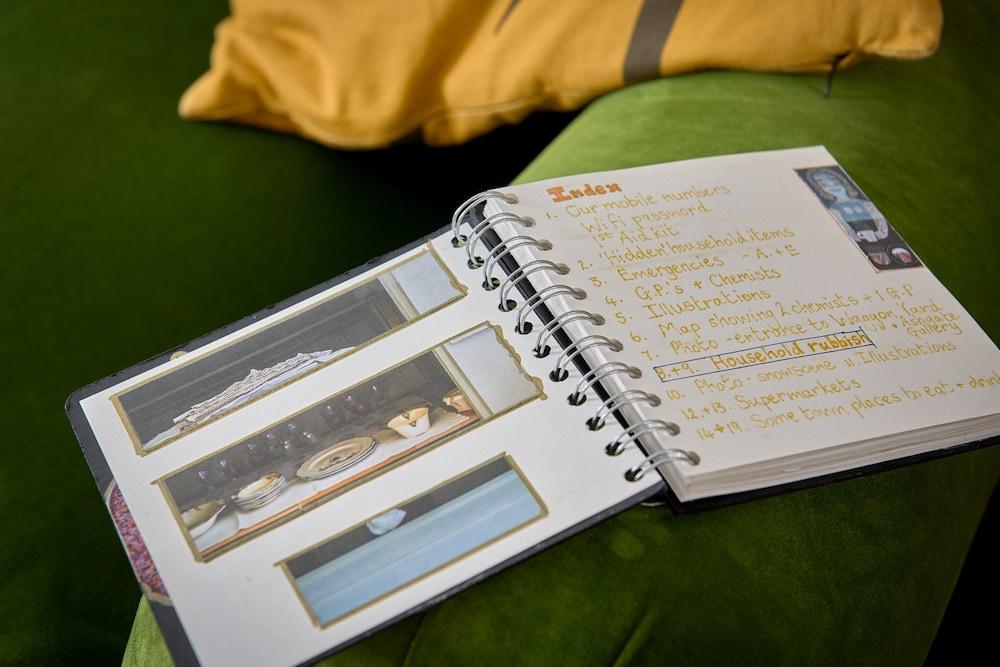 Index
1. Our mobile numbers
WiFi password
1st Aid kit
2. 'Hidden' household items
3. Emergencies - A.+E
4. G.P.'s + Chemists
5. Illustrations
6. Map showing 2 chemists + 1 G.P.
7. Photo - entrance to Waggon Yard + Ashgate Gallery
8.+9. Household rubbish
10. Photo - snow scene 11. Illustrations
12.+13. Supermarkets
14+19. Some town places to eat + drink